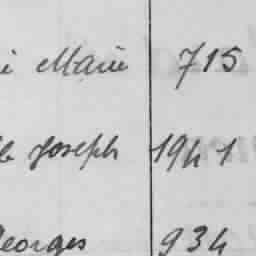 i Marie 715
le Joseph 1941
Georges 934